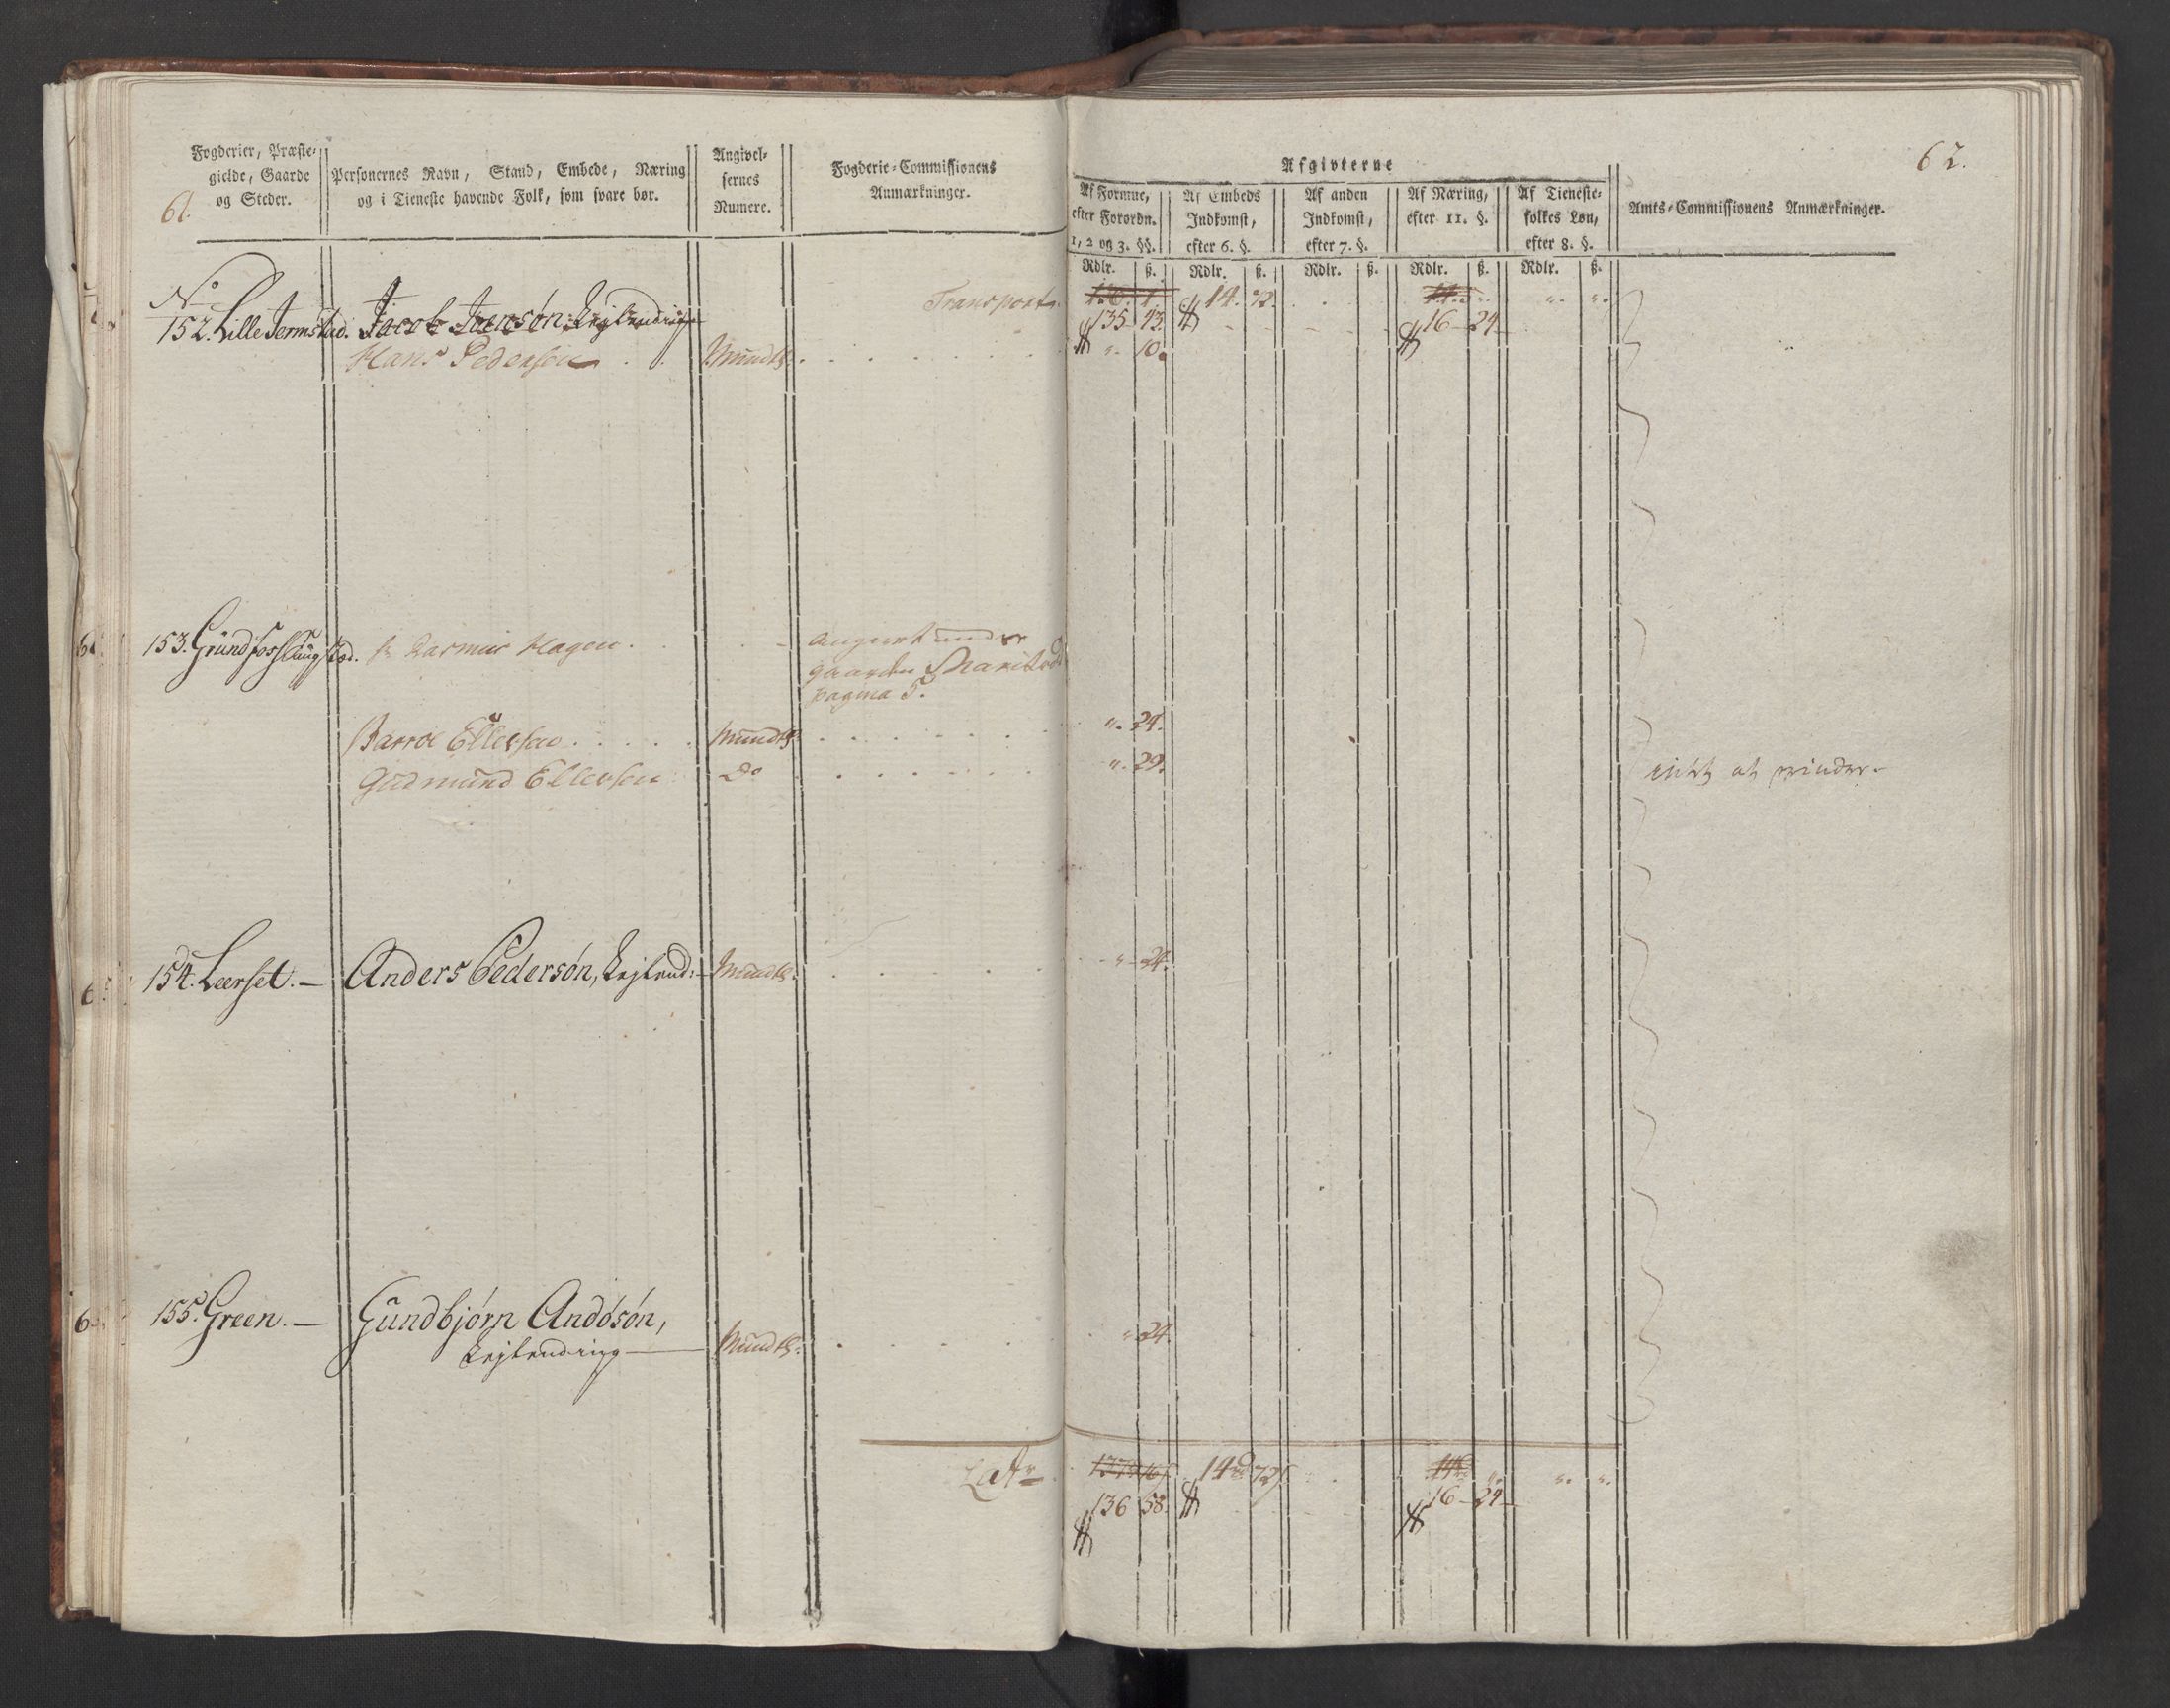 61.
Fogderier, Præste-
gielde, Gaarde
og Steder.
Personernes Navn, Stand, Embede, Næring
og i Tieneste havende Folk, som svare bør.
Angivel-
sernes
Numere.
Fogderie-Commissionens
Anmærkninger.
62.
Afgivterne
Af Formue,
efter Forordn.
1, 2 og 3. §§.
Af Embeds
Indkomst,
efter 6. §.
Af anden
Indkomst,
efter 7. §.
Af Næring,
efter 11. §.
Af Tieneste-
folkes Løn,
efter 8. §.
Amts-Commissionens Anmærkninger.
Rdlr. ß. Rdlr. ß. Rdlr. ß. Rdlr. ß. Rdlr. ß.
Transport 14. 72.
No
152. Lille Jermstad. Jacob Iversøn, Lejlending
135 43. 16 24
Hans Pedersen Mundtl: " 10.
153. Gründfossslüngstad. Rasmus Hagen.
angivet under
gaarden
pagina 5.
Barroe Ellefsen Mundtl: " 24.
Gudmund Ellefsen Do " 29. intet at minder.
154. Leerset. — Anders Pedersøn, Lejlend: Mundtl: " 24.
155. Green. — Gundbjørn Andøsøn,
Lejlending — Mundtl: " 24.
Latr 14 72
136 58. 16 24